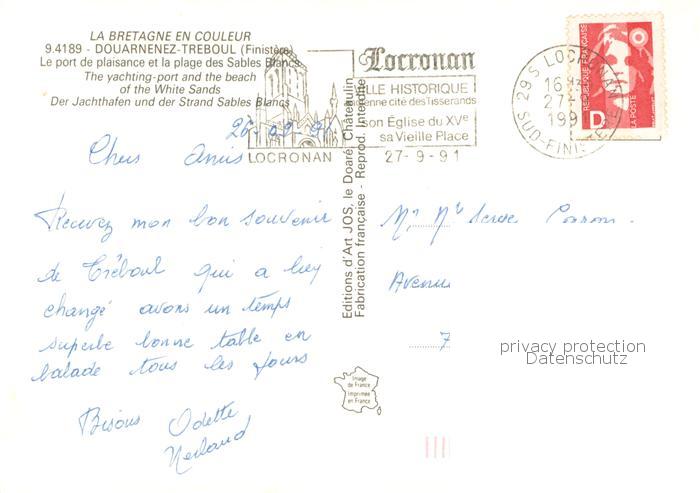 LA BRETAGNE EN COULEUR
9.4189 - DOUARNENEZ-TREBOUL (Finistère)
Le port de plaisance et la plage des Sables Blancs
The yachting-port and the beach
of the White Sands
Der Jachthafen und der Strand Sables Blancs
LOCRONAN
Locronan
LLE HISTORIQUE
enne cité des Tisserands
son Église du XVe
sa Vieille Place
27-9-91
29 S LOCRONAN
16 H
27-
1991
SUD-FINISTERE
REPUBLIQUE FRANÇAISE
D
LA POSTE
26-09-91
Chers Amis
Recevez mon bon souvenir
de Tréboul qui a bien
changé avons un temps
superbe bonne table en
balade tous les jours
Bisous Odette
Editions d'Art JOS, le Doaré, Châteaulin
Fabrication française - Reprod. Interdite
Avenue
7
Image
de France
Imprimée
en France
privacy protection
Datenschutz